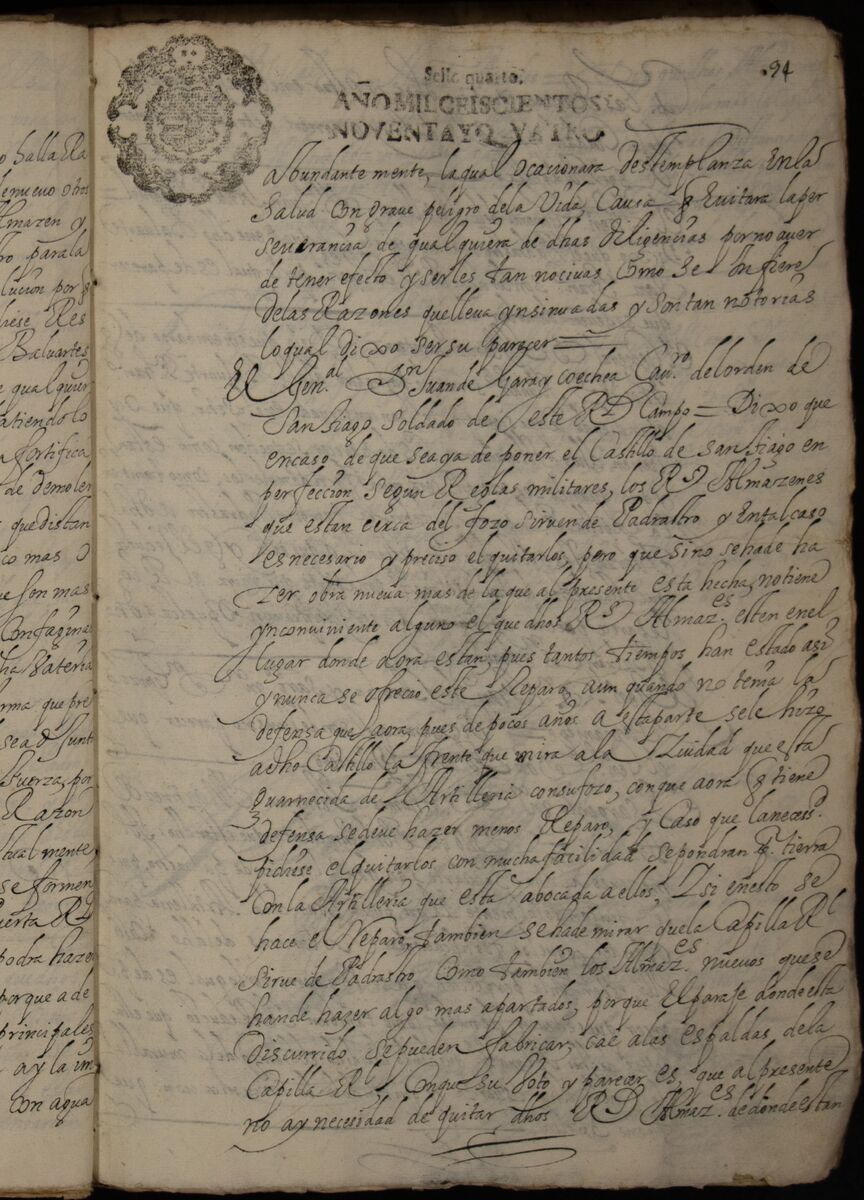 o halla Ra
lmazen y
ro para la
lucion por q
iese Res
Baluartes
e qualquier
atiendo lo
a fortifica
de demoler
que distan
co mas o
ue son mas
Con fagina
ha Bateria
rma que pre
fuerza, por
Razon
tual mente
se formen
uerta Rl
podra hazer
porque a de
principales
ay la im
con agua
94
Sello quarto.
AÑO MIL SEISCIENTOS Y
NOVENTA Y QVATRO
abundante mente, la qual ocacionara destemplanza en la
Salud con grave peligro de la Vida, Causa q Evitara la per
severancia de qual quiera de dhas diligencias por no aver
de tener efecto y serles tan nocivas Como se Infiere
de las Razones que lleva ynsinuadas y son tan notorias
lo qual Dixo ser su parecer =
El Gen.al Dn Juan de Garaycoechea Cav.ro del orden de
Santiago, Soldado de este Rl Campo = Dixo que
en caso de que se aya de poner el Castillo de Santiago en
perfeccion Segun Reglas militares, los Rs Almazenes
que estan cerca del fozo sirven de Padrastro y En tal caso
es necesario y preciso el quitarlos, pero que si no se ha de ha
zer obra nueva mas de la que al presente esta hecha, no tiene
ynconviniente alguno el que dhos Rs Almaz.es esten en el
lugar donde aora estan, pues tantos tiempos han estado asi
y nunca se ofrecio este Reparo, aun quando no tenia la
defensa que aora, pues de pocos años a esta parte se le hizo
a dho Castillo la frente que mira a la Ziudad que esta
Guarnecida de Artilleria con su fozo, conque aora q tiene
defensa se deve hazer menos Reparo, y Caso que la necess.d
pidiese el quitarlos con mucha facilidad se pondran pr tierra
Con la Artilleria que esta abocada a ellos, Y si en esto se
hace el Reparo, tambien se ha de mirar que la Capilla Rl
Sirve de Padrastro, Como tambien los Almaz.es nuevos que se
han de hazer algo mas apartados, porque El paraje donde esta
Discurrido se pueden fabricar, cae a las espaldas de la
Capilla Rl, Conque su Voto y parecer es que al presente
no ay necesidad de quitar dhos Rs Almaz.es de donde estan